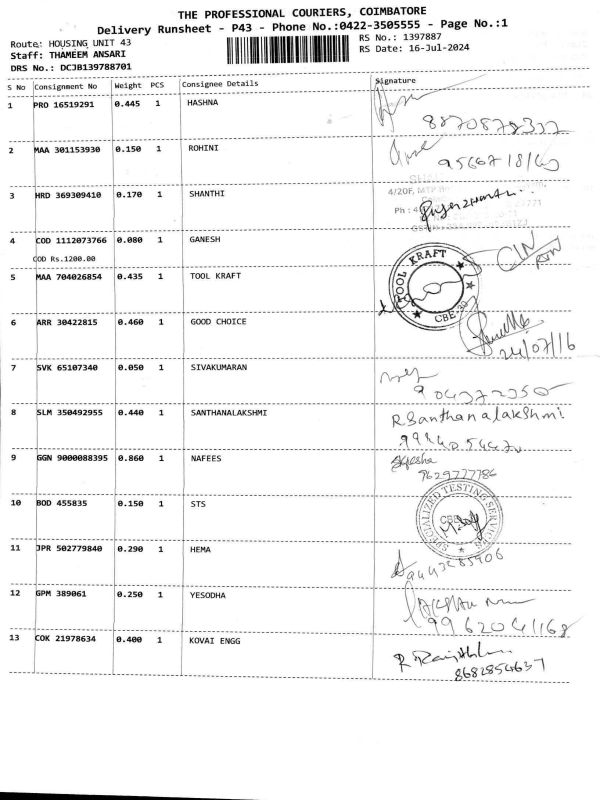 THE PROFESSIONAL COURIERS, COIMBATORE
Delivery Runsheet - P43 - Phone No.:0422-3505555 - Page No.:1
Route: HOUSING UNIT 43
RS No.: 1397887
Staff: THAMEEM ANSARI
RS Date: 16-Jul-2024
DRS No.: DCJB139788701
S No Consignment No Weight PCS Consignee Details Signature
1 PRO 16519291 0.445 1 HASHNA
2 MAA 301153930 0.150 1 ROHINI
3 HRD 369309410 0.170 1 SHANTHI
4/20F, MTP
Ph :
4 COD 1112073766 0.080 1 GANESH
COD Rs.1200.00
5 MAA 704026854 0.435 1 TOOL KRAFT
TOOL KRAFT
6 ARR 30422815 0.460 1 GOOD CHOICE
7 SVK 65107340 0.050 1 SIVAKUMARAN
8 SLM 350492955 0.440 1 SANTHANALAKSHMI
R Santhanalakshmi
9 GGN 9000088395 0.860 1 NAFEES
9629777786
10 BOD 455835 0.150 1 STS
SPECIALIZED TESTING SERVICES
11 JPR 502779840 0.290 1 HEMA
9443285906
12 GPM 389061 0.250 1 YESODHA
9962041168
13 COK 21978634 0.400 1 KOVAI ENGG
8682854637